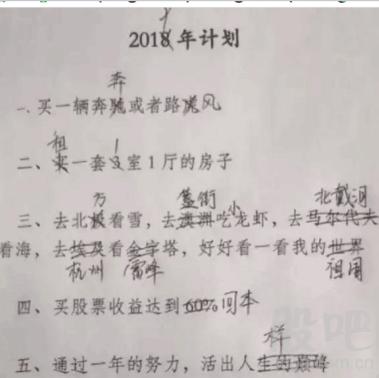 2018年计划
奔
一、买一辆奔驰或者路虎风
租 1
二、买一套3室1厅的房子
方 簋街 小 北戴河
三、去北极看雪，去澳洲吃龙虾，去马尔代夫
看海，去埃及看金字塔，好好看一看我的世界
杭州 雷峰 祖国
四、买股票收益达到60%回本
样
五、通过一年的努力，活出人生的巅峰
股吧